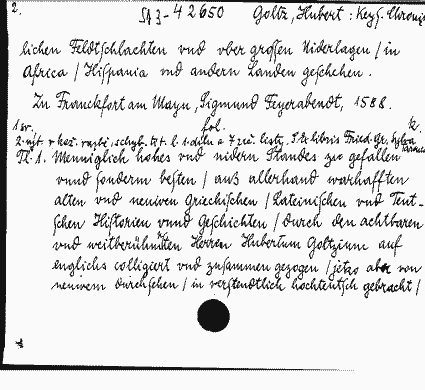 2. SA 3-42650 Goltz, Hubert: Keys. Chronic
lichen Feldtschlachten vnd vber grossen Niderlagen / in
Africa / Hispania vnd andern Landen geschehen.
Zu Franckfort am Mayn, Sigmund Feyerabendt, 1588.
1 sv. fol. tz.
2. výt. v kož. vazbě, schyb. tz t. l. 1. dílu a 7 zač. listy. P. Ex libris Fried. Gr. Sylva
Tl. 1. Menniglich hohes vnd nidern Standes zu gefallen
vnnd sonderm besten / auß allerhand warhafften
alten vnd neuwen Griechischen / Lateinischen vnd Teut-
schen Historien vnnd Geschichten / durch den achtbaren
vnd weitberühmten Herren Hubertum Goltzium auf
englichs colligiert vnd zusammen gezogen / jetzo aber von
neuwem durchsehen / in verstendtlich hochteutsch gebracht /